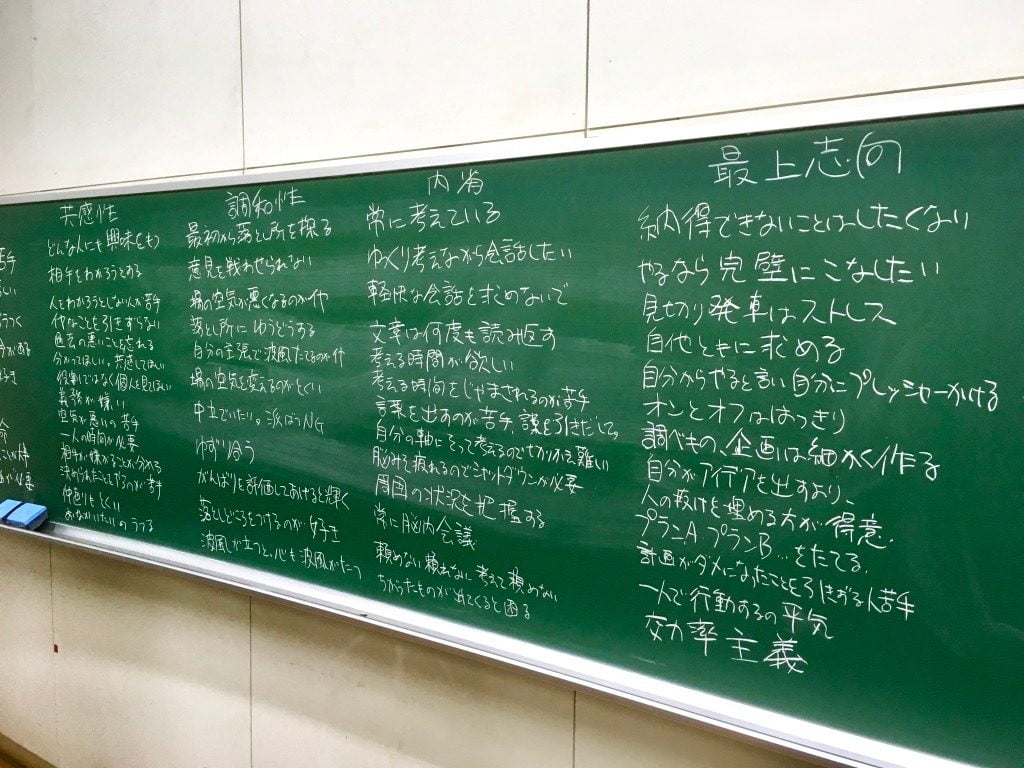 共感性
どんな人にも興味をもつ
相手をわかろうとする
人をわかろうとしない人が苦手
分かってほしい。共感してほしい
役割ではなく個人を見てほしい
義務が嫌い
空気が悪いの苦手
一人の時間が必要
相手が嫌がることが分かる
調和性
最初から落とし所を探る
意見を戦わせられない
場の空気が悪くなるのがイヤ
落とし所にゆうどうする
自分の主張で波風たてるのがイヤ
場の空気を変えるのがとくい
中立でいたい。派ばつNG
ゆずり合う
がんばりを評価してあげると輝く
落としどころをつけるのが好き
波風が立つと、心も波風がたつ
内省
常に考えている
ゆっくり考えながら会話したい
軽快な会話を求めないで
文章は何度も読み返す
考える時間が欲しい
考える時間をじゃまされるのが苦手
言葉を出すのが苦手、誰を引きだして
自分の軸にそって考えるので切りかえ難い
脳みそ疲れるのでシャットダウンが必要
周囲の状況を把握する
常に脳内会議
頼めない 頼れない 考えて頼めない
ちがったものが出てくると困る
最上志向
納得できないことはしたくない
やるなら完璧にこなしたい
見切り発車はストレス
自他ともに求める
自分からやると言い自分にプレッシャーかける
オンとオフははっきり
調べもの、企画は細かく作る
自分がアイデアを出すより、
人の抜けを埋める方が得意。
プランA プランB…をたてる。
計画がダメになったことを引きずる人苦手
一人で行動するの平気
効率主義